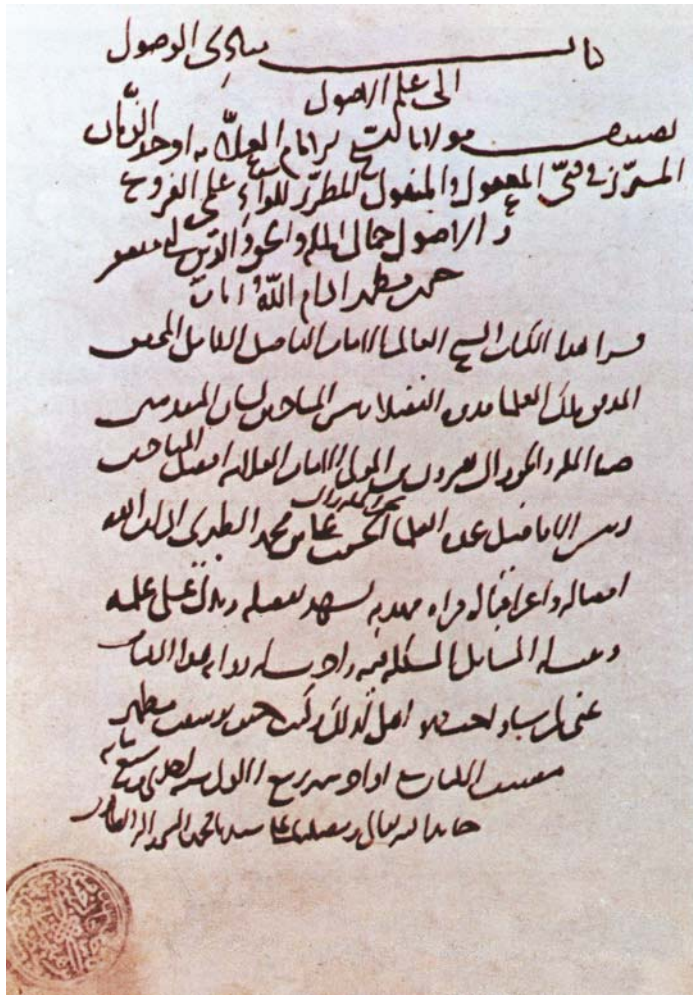 كتاب مبادئ الوصول
الى علم الاصول
تصنيف مولانا الشيخ الامام العلامه اوحد الزمان
المبرّز في فنّي المعقول والمنقول المطرّز للواء علمي الفروع
و الاصول جمال المله والحق والدين ابي منصور
حسن مطهر ادام الله ايامه
قرا هذا الكتاب الشيخ العالم الامام الفاضل الكامل المحقق
المدقق ملك العلما قدوه الفضلا رييس المتاخرين لسان المتقدمين
المله والحق والدين المولى الامام العلامه افضل المتاخرين
رييس الافاضل عمده العلما محمد ادام الله
افضاله واعز اقباله قراه مهذبه تشهد بفضله وتدل على علمه
وعن المسائل المشكله فيه واذنت له روايه هذا الكتاب
عني لمن شاء واحب فهو اهل لذلك وكتب حسن يوسف مطهر
مصنف الكتاب في ربيع الاول سنه احدى وسبعمايه
حامدا لله تعالى ومصليا على سيدنا محمد النبي واله الطاهرين